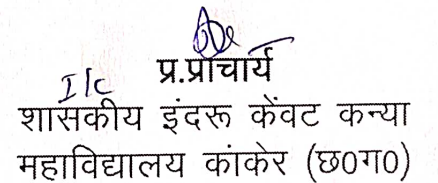 प्र.प्राचार्य
I/c
शासकीय इंदरू केंवट कन्या
महाविद्यालय कांकेर (छ0ग0)